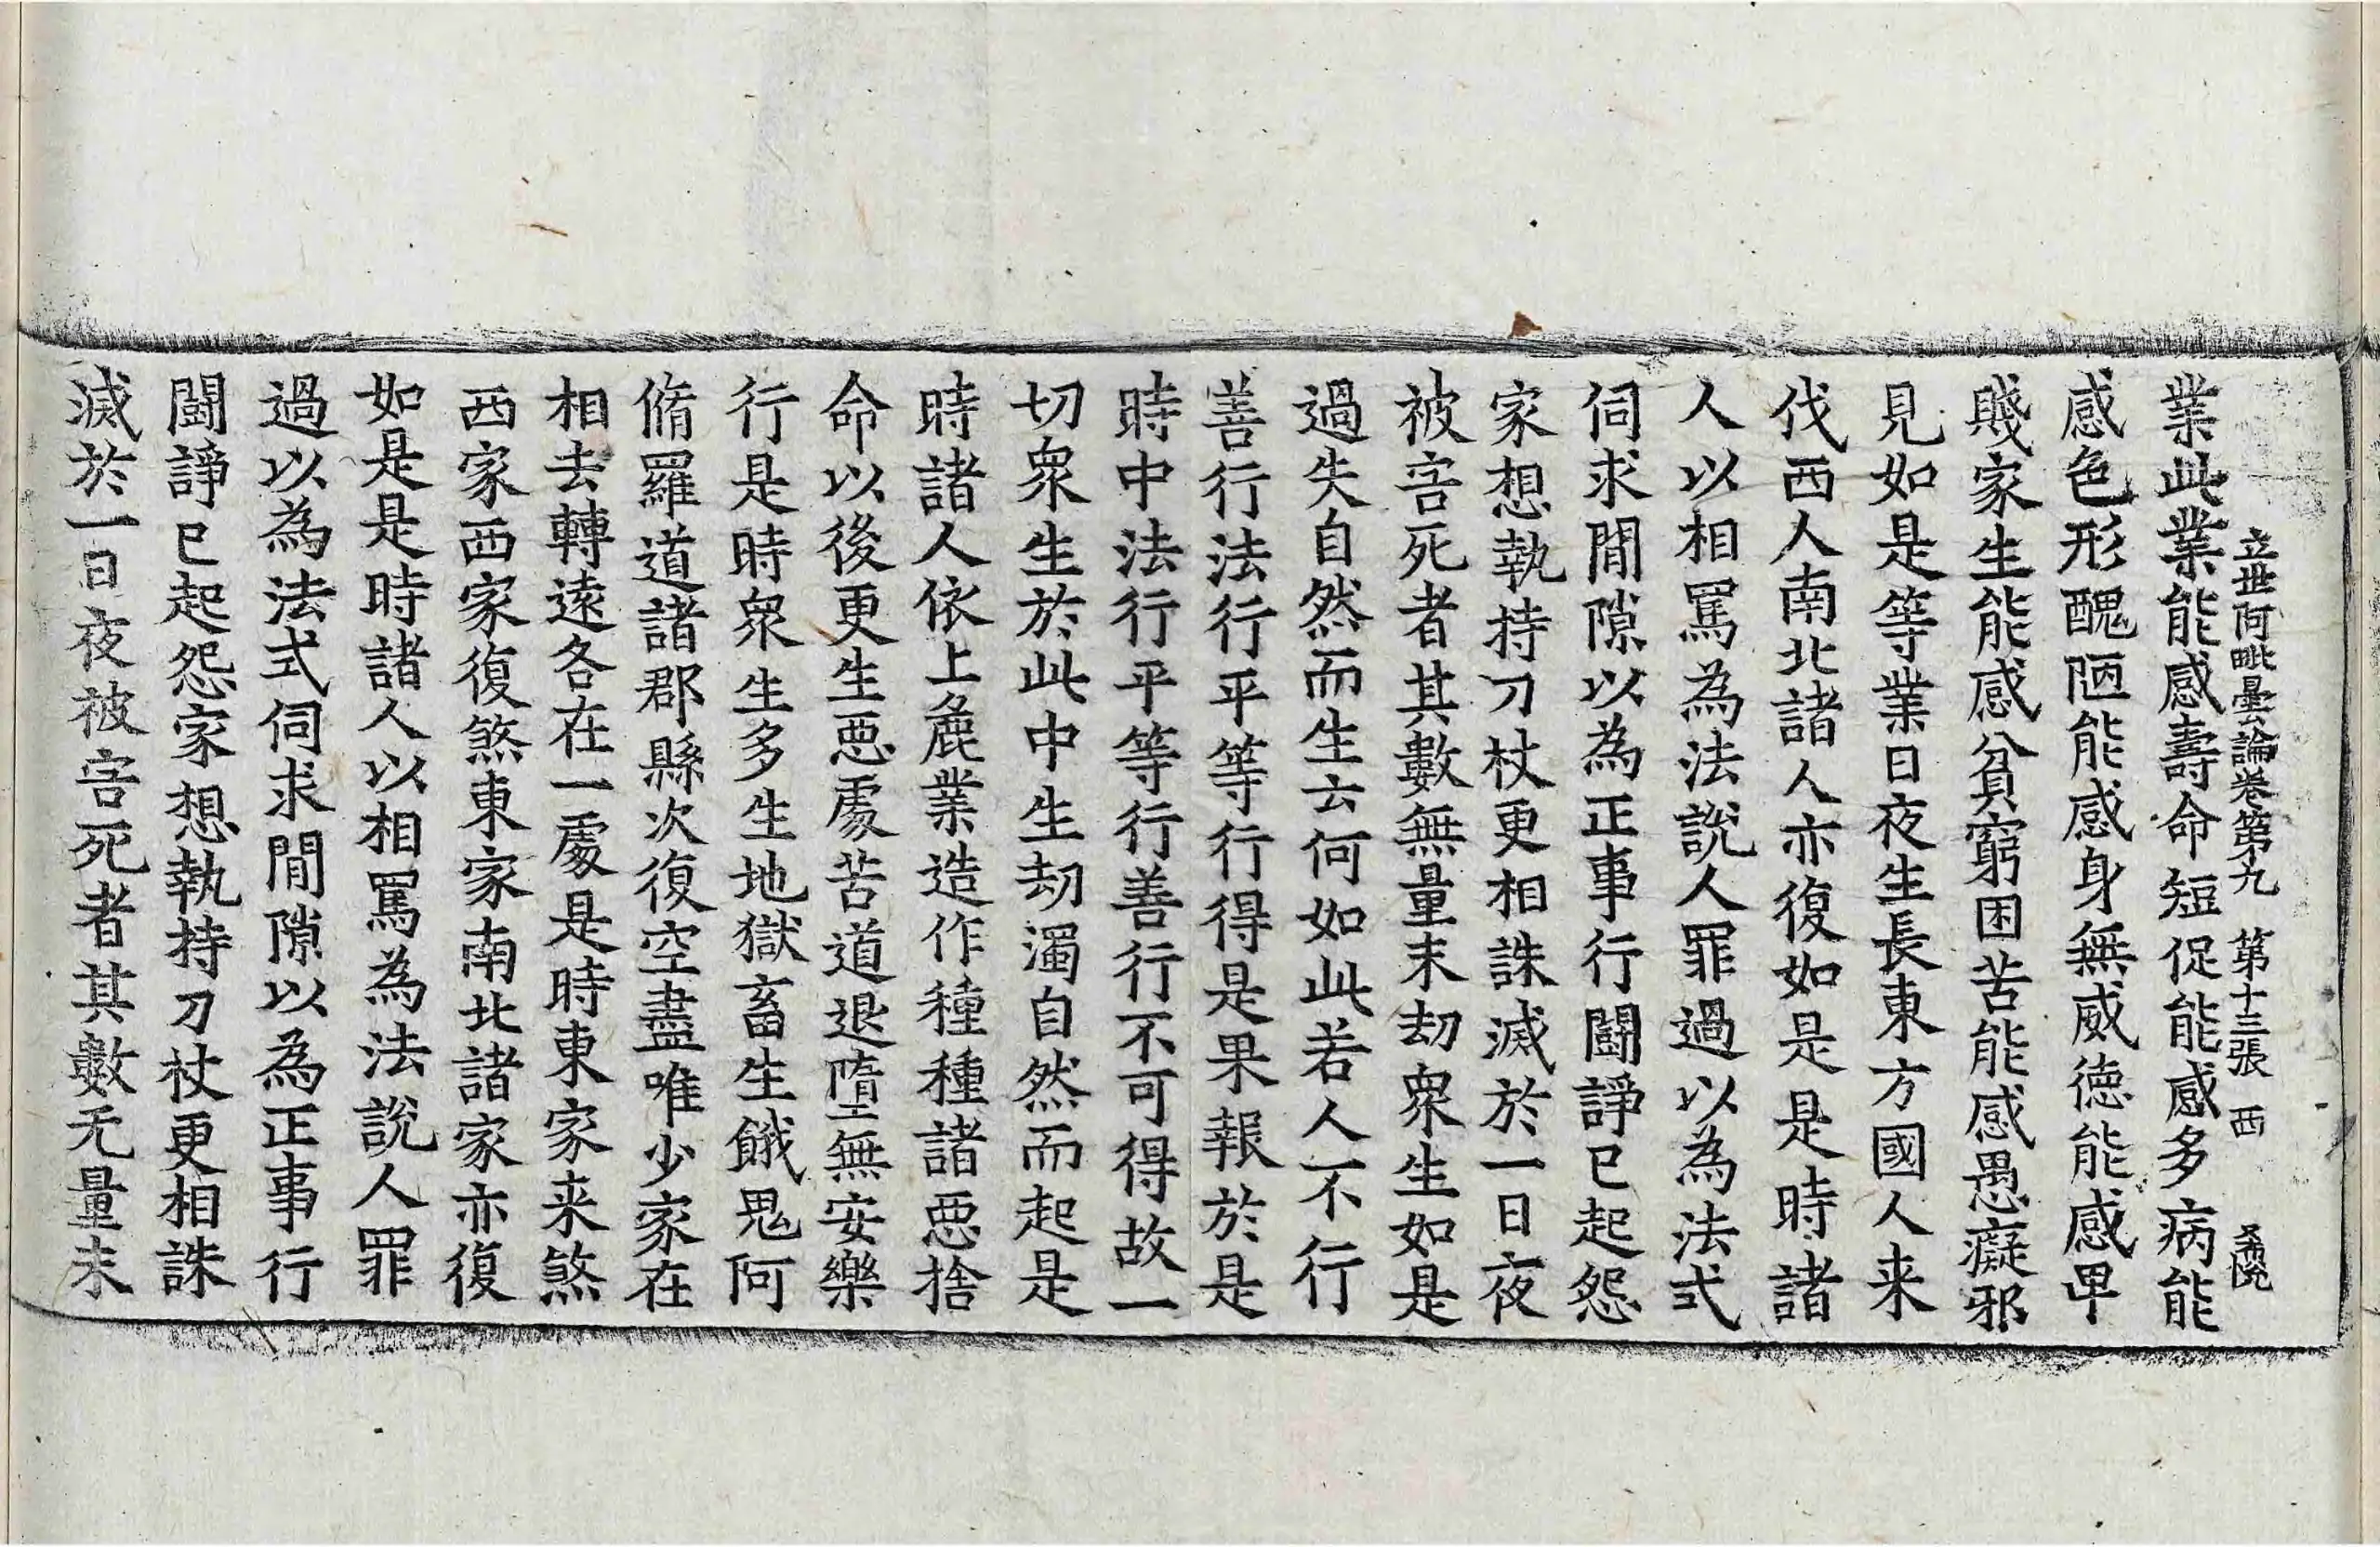 立世阿毗曇論卷第九 第十三張 西 希悅
業此業能感壽命短促能感多病能
感色形醜陋能感身無威德能感卑
賤家生能感貧窮困苦能感愚癡邪
見如是等業日夜生長東方國人来
伐西人南北諸人亦復如是是時諸
人以相罵為法說人罪過以為法式
伺求閒隙以為正事行鬪諍已起怨
家想執持刀杖更相誅滅於一日夜
被害死者其數無量末劫衆生如是
過失自然而生云何如此若人不行
善行法行平等行得是果報於是
時中法行平等行善行不可得故一
切衆生於此中生劫濁自然而起是
時諸人依上麁業造作種種諸惡捨
命以後更生惡處苦道退墮無安樂
行是時衆生多生地獄畜生餓鬼阿
脩羅道諸郡縣次復空盡唯少家在
相去轉遠各在一處是時東家来煞
西家西家復煞東家南北諸家亦復
如是是時諸人以相罵為法說人罪
過以為法式伺求閒隙以為正事行
鬪諍已起怨家想執持刀杖更相誅
滅於一日夜被害死者其數无量末